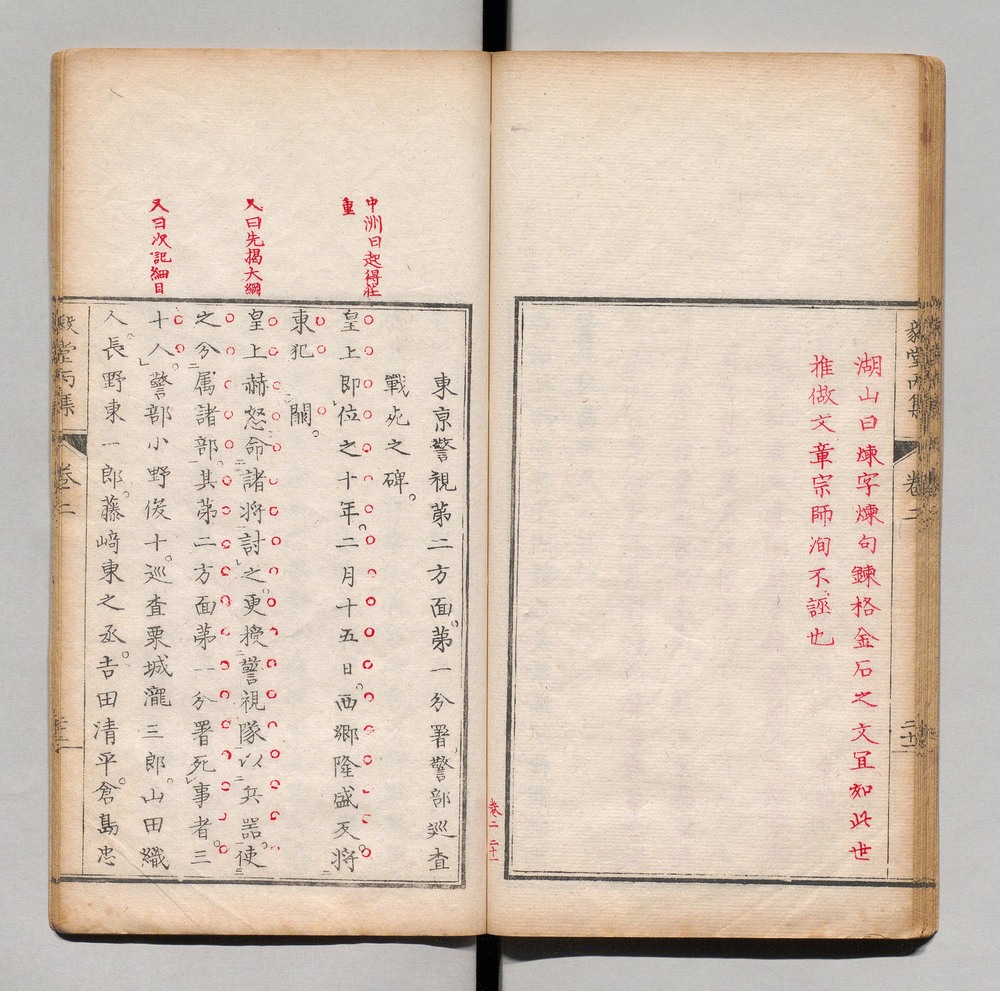 湖山曰煉字煉句鍊格金石之文宜如此世
推做文章宗師洵不誣也
毅堂丙集
卷二
二十
卷二 二十一
中洲曰起得莊
重
又曰先揭大綱
又曰次記細目
東京警視第二方面。第一分署警部巡查
戰死之碑。
皇上即位之十年。二月十五日。西鄉隆盛反。将
東犯 闕。
皇上赫怒。命諸将討之。更授警視隊以兵器。使
之分属諸部。其第二方面第一分署死事者。三
十人。警部小野俊十。巡查栗城瀧三郎。山田織
人。長野東一郎。藤﨑東之丞。吉田清平。倉島忠
毅堂丙集
卷二